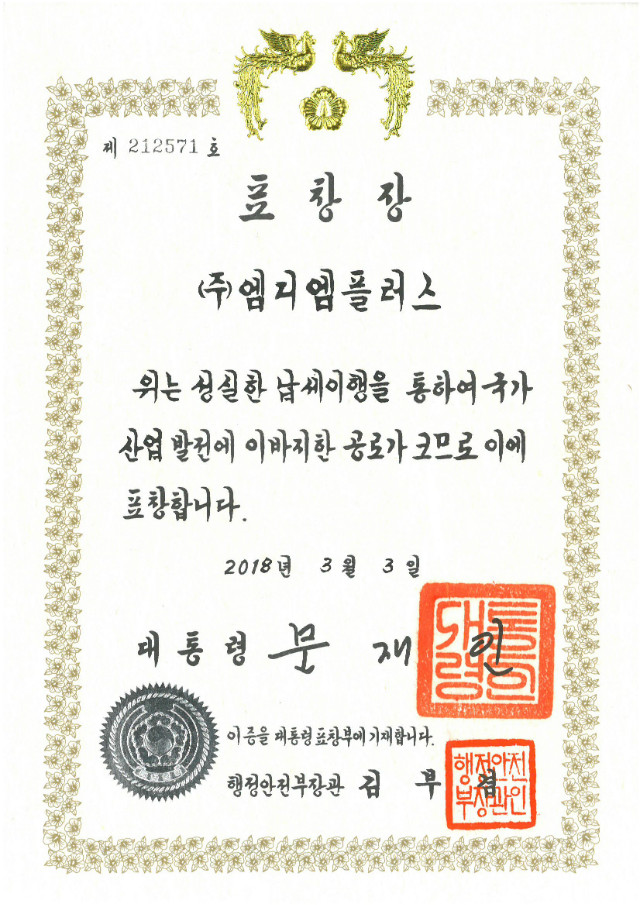 제 212571 호
표 창 장
(주)엠디엠플러스
위는 성실한 납세이행을 통하여 국가
산업 발전에 이바지한 공로가 크므로 이에
표창합니다.
2018년 3월 3일
대통령 문 재 인
대통령의인
이 증을 대통령표창부에 기재합니다.
행정안전부장관 김 부 겸
행정안전
부장관인